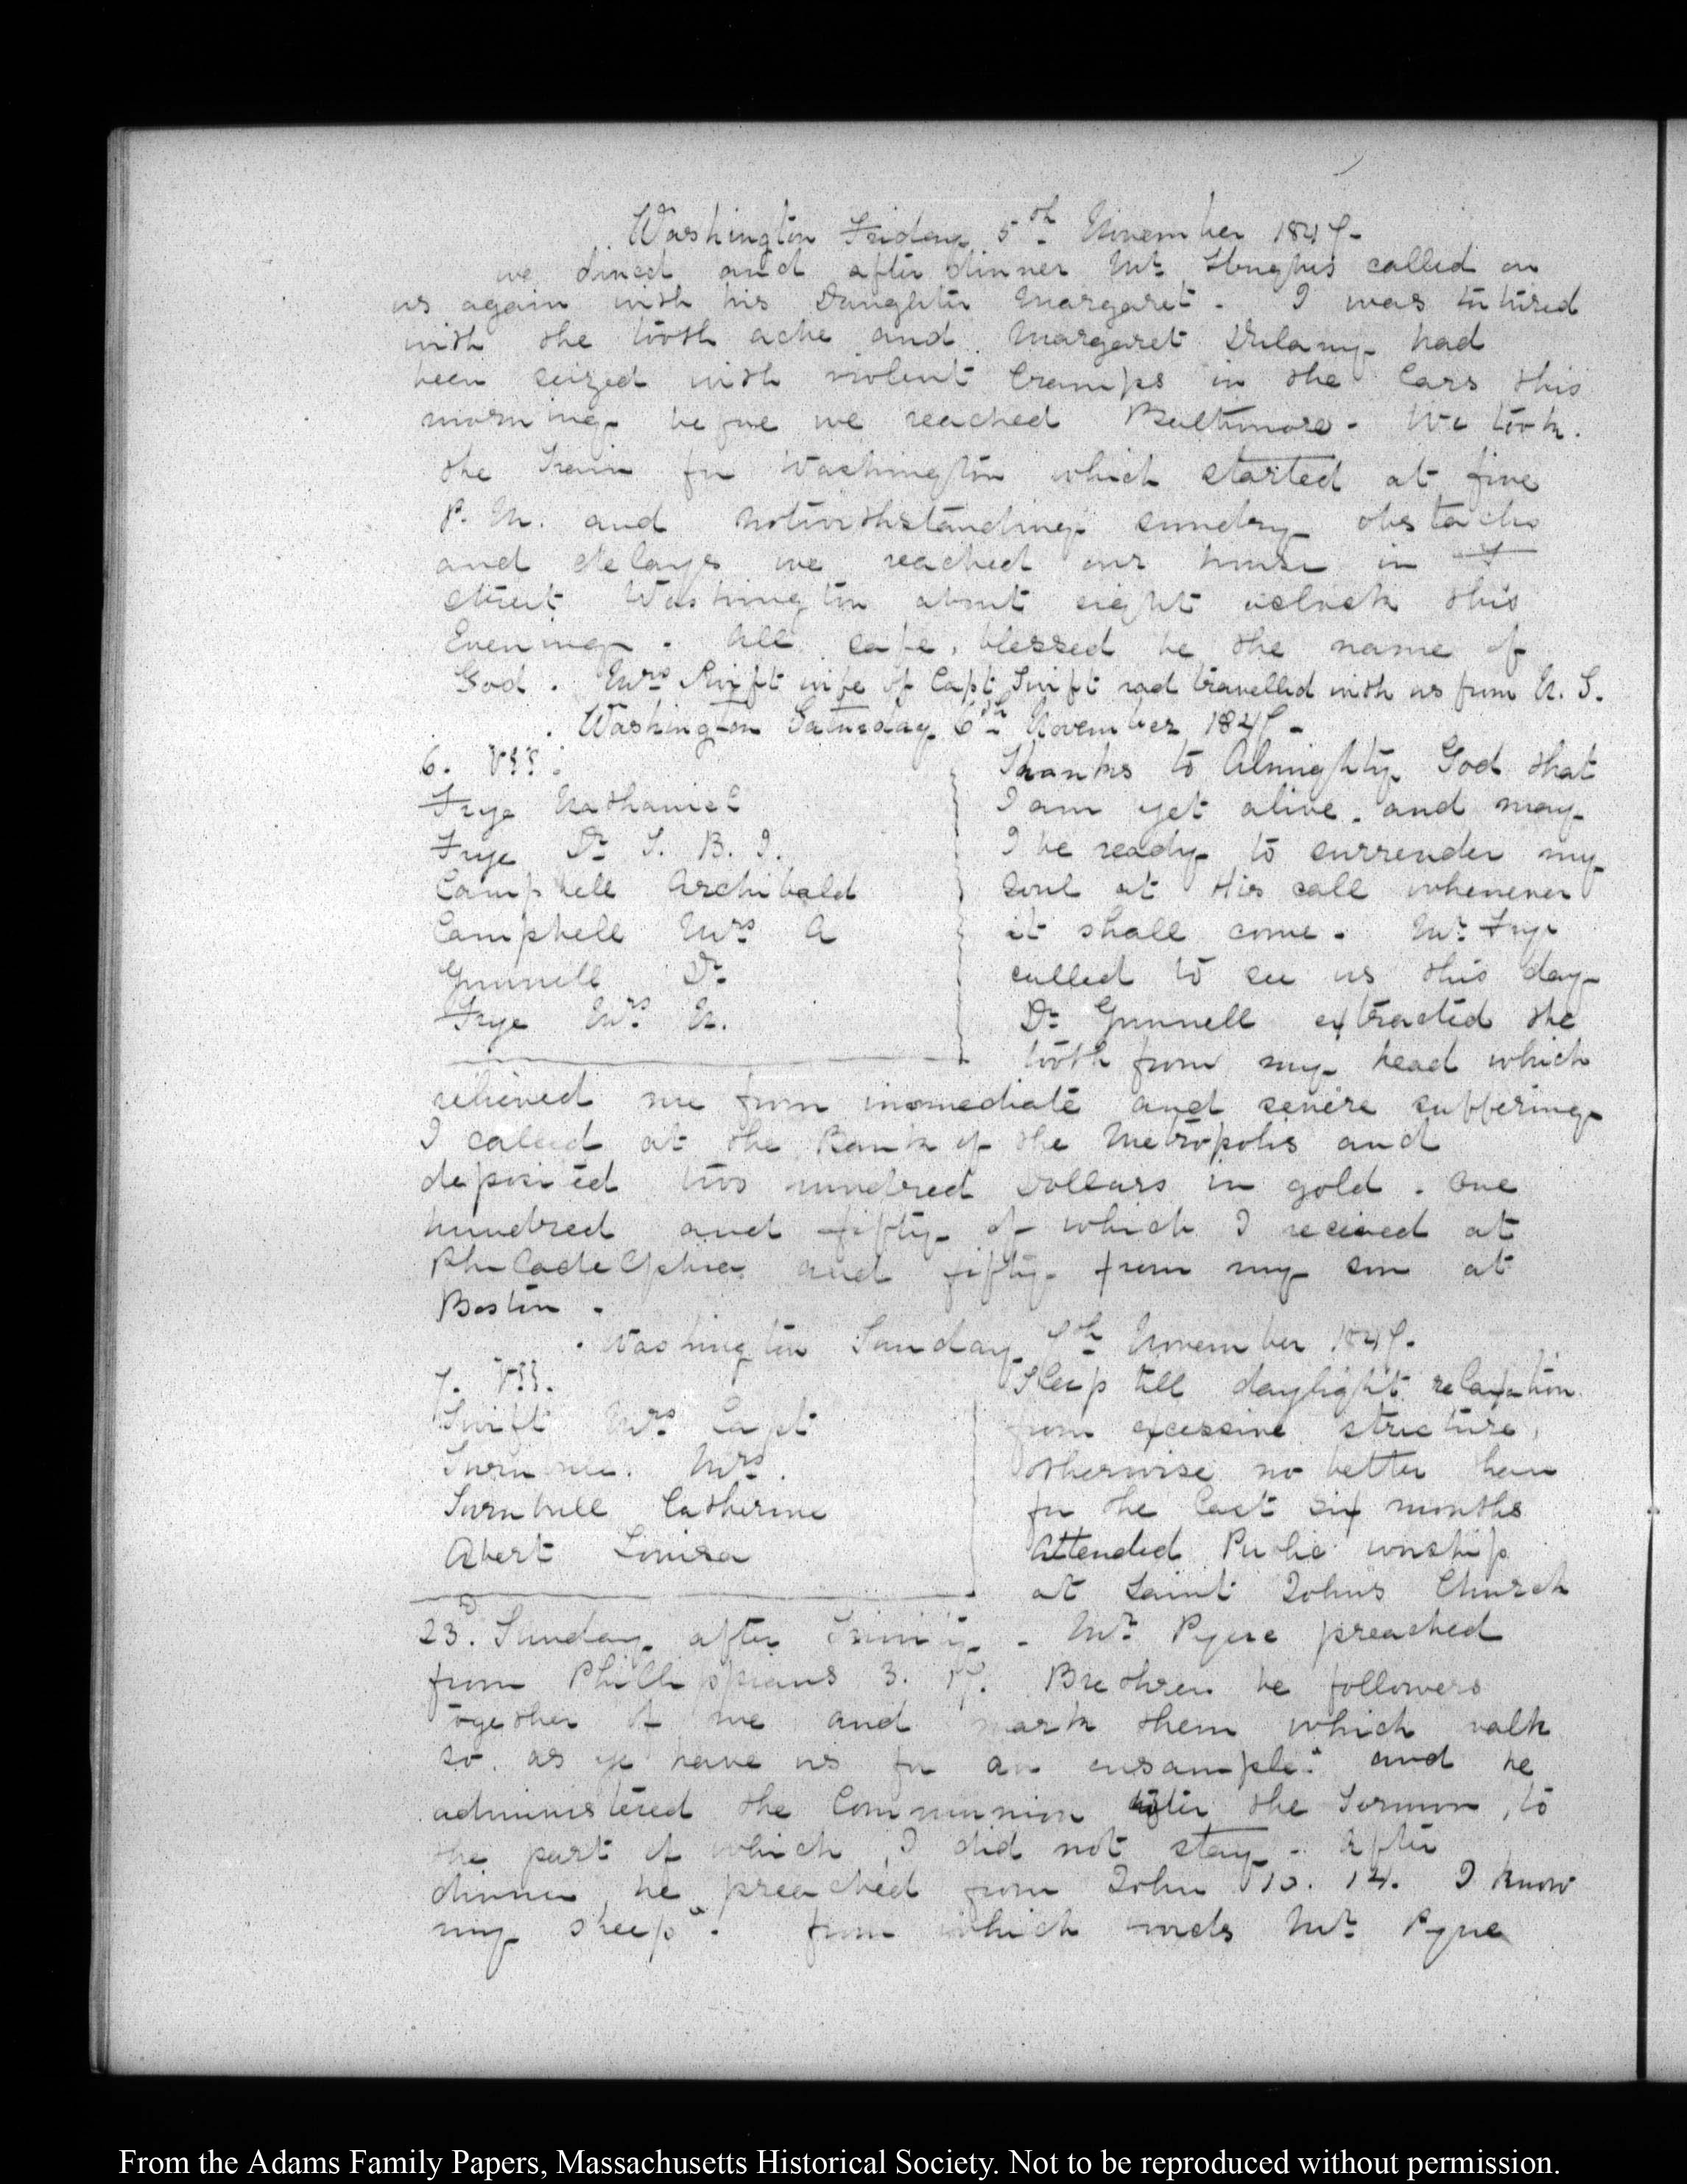 Washington Friday 5th November 1847-
we dined and after dinner Mr Hughes called on
us again with his Daughter Margaret - I was tortured
with the tooth ache and Margaret Dulany had
been seized with violent Cramps in the Cars this
morning before we reached Baltimore - We took
the Train for Washington which started at five
P. M. and notwithstanding sundry obstacles
and delays we reached our house in F
street Washington about eight o'clock this
Evening. All safe, blessed be the name of
God. Mrs Swift wife of Capt Swift had travelled with us from N. Y.
Washington Saturday 6th November 1847-
6. VII:
Frye Nathaniel
Frye Dr T. B. J.
Campbell Archibald
Campbell Mrs A
Gunnell Dr
Frye Mrs N.
Thanks to Almighty God that
I am yet alive, and may
I be ready to surrender my
soul at His call whenever
it shall come. Mr Frye
called to see us this day
Dr Gunnell extracted the
tooth from my head which
relieved me from immediate and severe suffering
I called at the Bank of the Metropolis and
deposited two hundred Dollars in gold. One
hundred and fifty of which I received at
Philadelphia and fifty from my son at
Boston.
Washington Sunday 7th November 1847-
7. VII.
Swift Mrs Capt
Turnbull Mrs.
Turnbull Catherine
Abert Louisa
Sleep till daylight relaxation
from excessive stricture,
otherwise no better than
for the last six months
Attended Public worship
at Saint Johns Church
23d. Sunday after Trinity - Mr Pyne preached
from Phillippians 3. 17. Brethren be followers
together of me and mark them which walk
so as ye have us for an ensample" and he
administered the Communion after the Sermon, to
the part of which I did not stay - After
dinner he preached from John 10. 14. I know
my sheep". from which words Mr Pyne
From the Adams Family Papers, Massachusetts Historical Society. Not to be reproduced without permission.